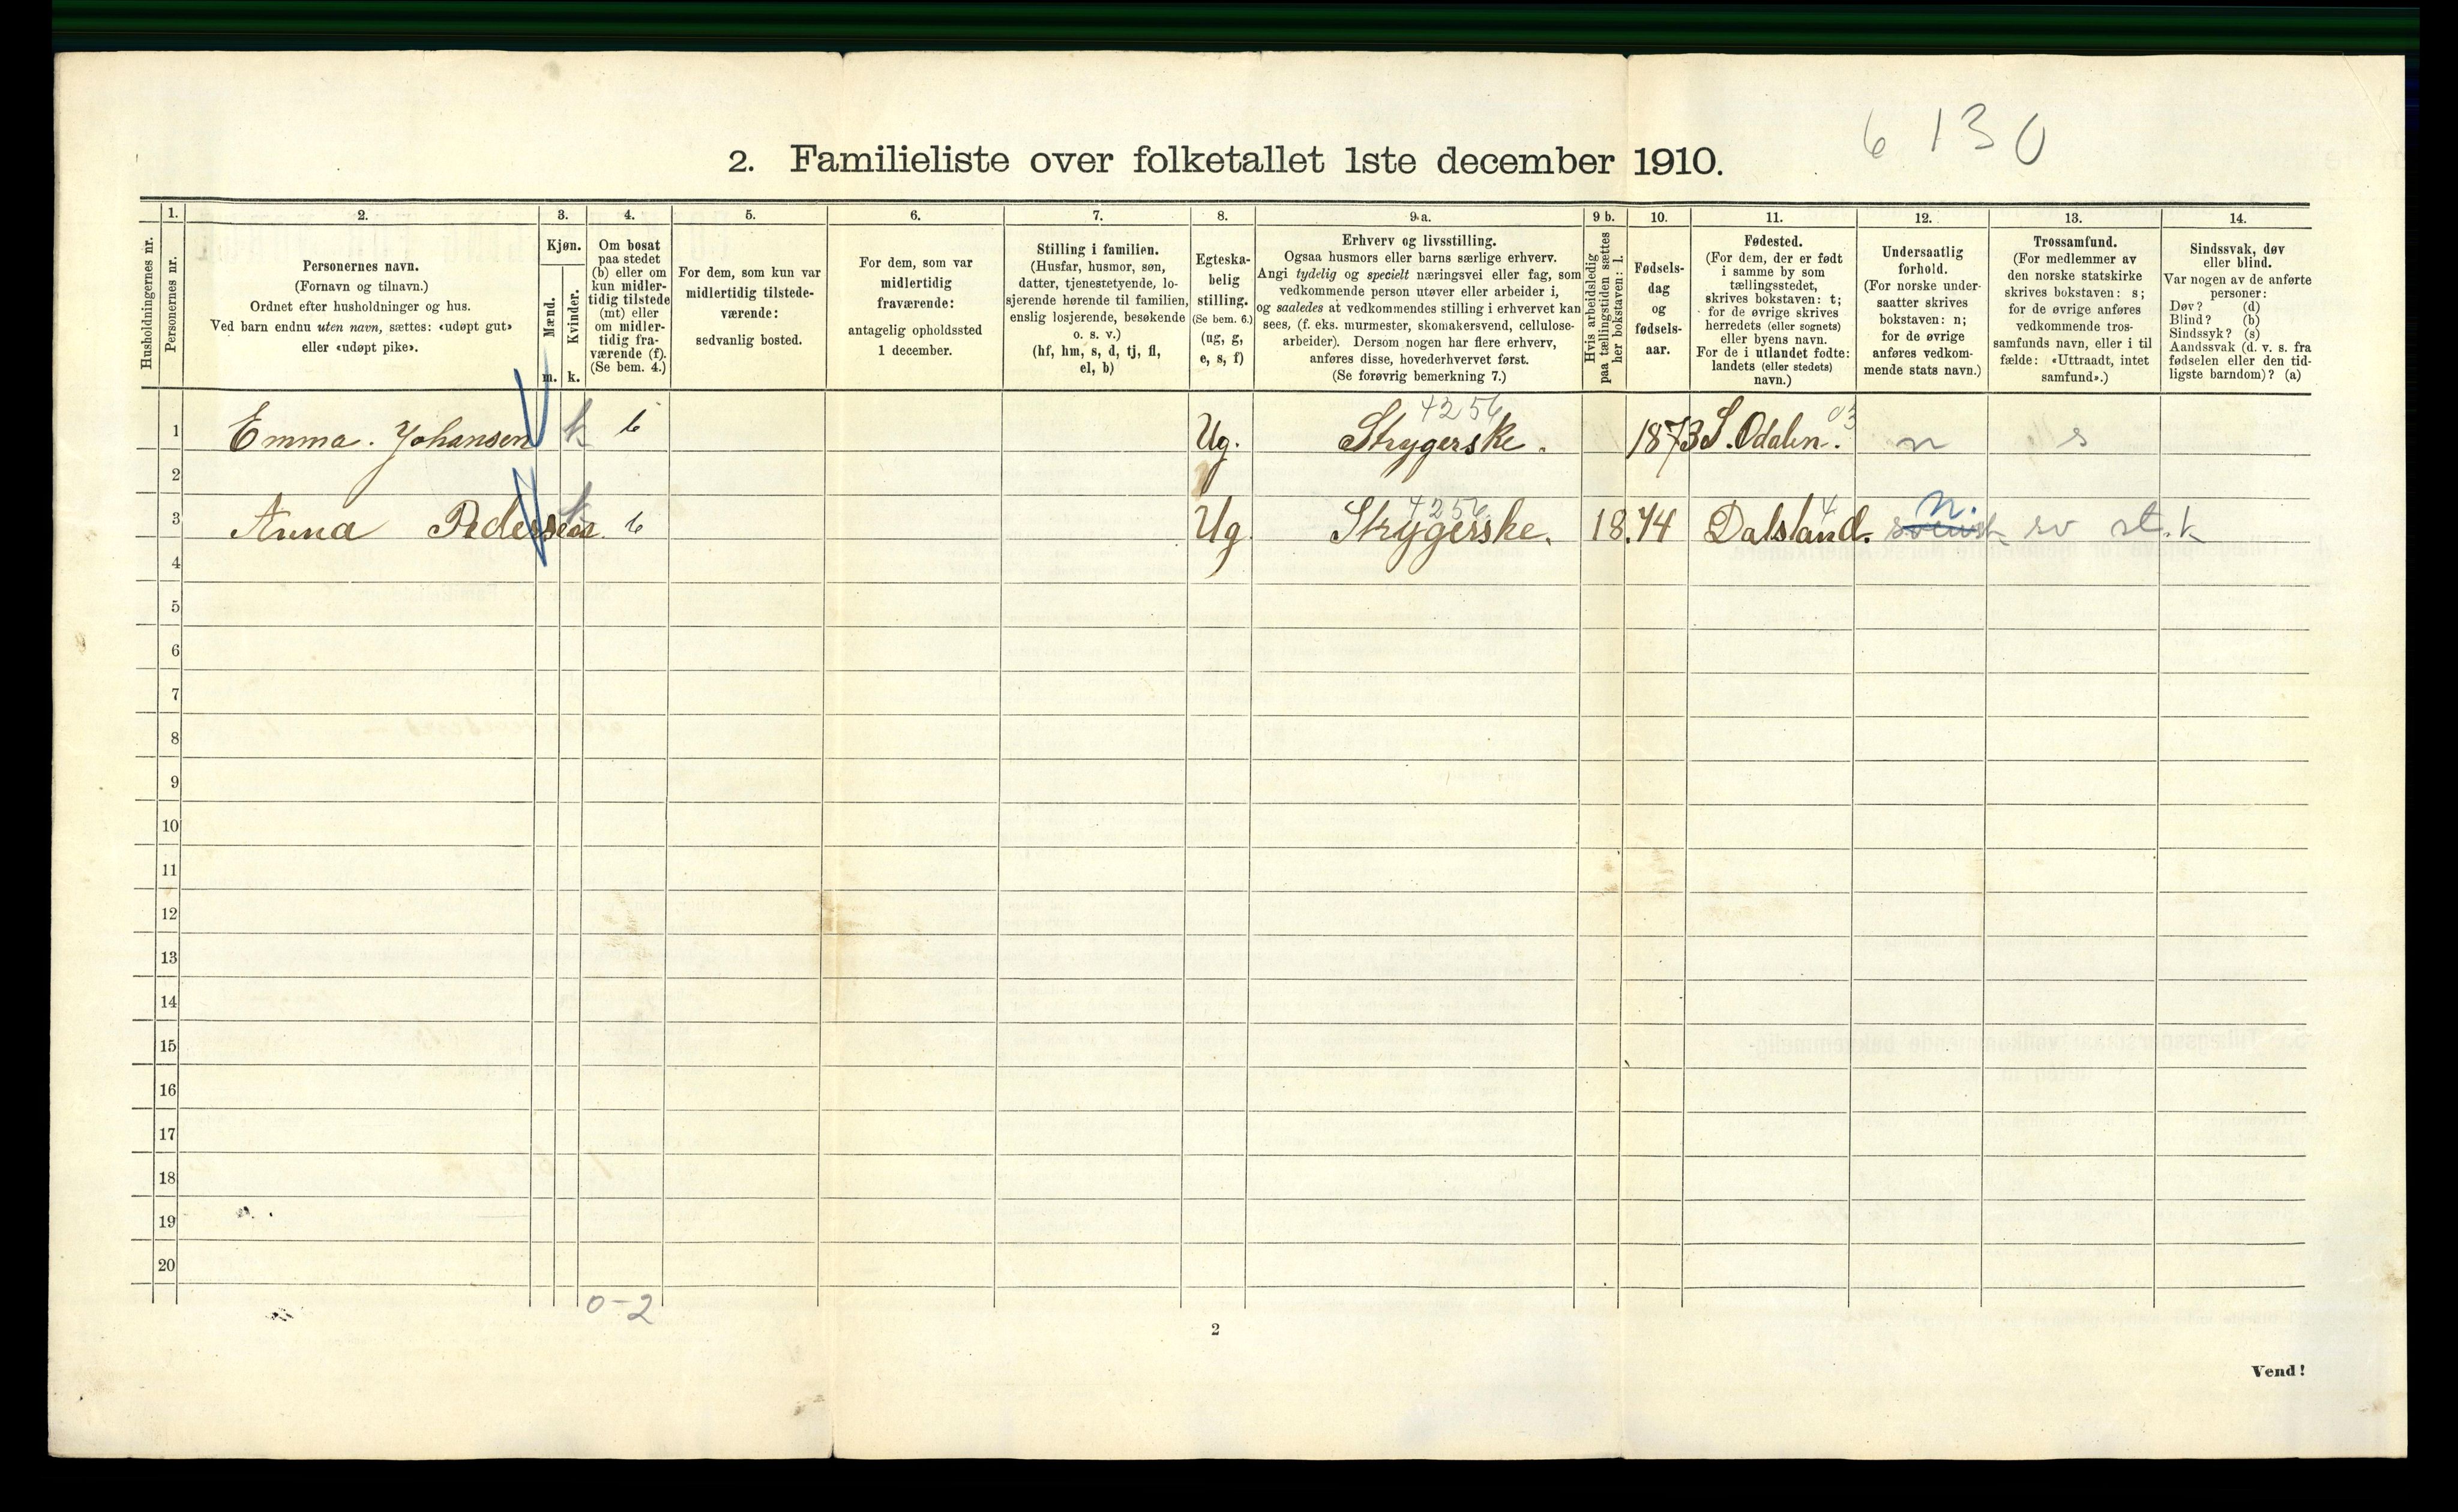 6 130
2. Familieliste over folketallet 1ste december 1910.
1. 2. 3. 4. 5. 6. 7. 8. 9 a. 9 b. 10. 11. 12. 13. 14.
Husholdningernes nr.
Personernes nr.
Personernes navn.
(Fornavn og tilnavn.)
Ordnet efter husholdninger og hus.
Ved barn endnu uten navn, sættes: «udøpt gut»
eller «udøpt pike».
Kjøn.
Mænd.
Kvinder.
m. k.
Om bosat
paa stedet
(b) eller om
kun midler-
tidig tilstede
(mt) eller
om midler-
tidig fra-
værende (f).
(Se bem. 4.)
For dem, som kun var
midlertidig tilstede-
værende:
sedvanlig bosted.
For dem, som var
midlertidig
fraværende:
antagelig opholdssted
1 december.
Stilling i familien.
(Husfar, husmor, søn,
datter, tjenestetyende, lo-
sjerende hørende til familien,
enslig losjerende, besøkende
o. s. v.)
(hf, hm, s, d, tj, fl,
el, b)
Egteska-
belig
stilling.
(Se bem. 6.)
(ug, g,
e, s, f)
Erhverv og livsstilling.
Ogsaa husmors eller barns særlige erhverv.
Angi tydelig og specielt næringsvei eller fag, som
vedkommende person utøver eller arbeider i,
og saaledes at vedkommendes stilling i erhvervet kan
sees, (f. eks. murmester, skomakersvend, cellulose-
arbeider). Dersom nogen har flere erhverv,
anføres disse, hovederhvervet først.
(Se forøvrig bemerkning 7.)
Hvis arbeidsledig
paa tællingstiden sættes
her bokstaven: l.
Fødsels-
dag
og
fødsels-
aar.
Fødested.
(For dem, der er født
i samme by som
tællingsstedet,
skrives bokstaven: t;
for de øvrige skrives
herredets (eller sognets)
eller byens navn.
For de i utlandet fødte:
landets (eller stedets)
navn.)
Undersaatlig
forhold.
(For norske under-
saatter skrives
bokstaven: n;
for de øvrige
anføres vedkom-
mende stats navn.)
Trossamfund.
(For medlemmer av
den norske statskirke
skrives bokstaven: s;
for de øvrige anføres
vedkommende tros-
samfunds navn, eller i til
fælde: «Uttraadt, intet
samfund».)
Sindssvak, døv
eller blind.
Var nogen av de anførte
personer:
Døv? (d)
Blind? (b)
Sindssyk? (s)
Aandssvak (d. v. s. fra
fødselen eller den tid-
ligste barndom)? (a)
4256 03
1 Emma. Johansen k b Ug. Strygerske. 1873 S. Odalen. n s
2
4256 4 n.
3 Anna Pedersen. k b Ug Strygerske. 18.74 Dalsland. svensk sv st. k
4
5
6
7
8
9
10
11
12
13
14
15
16
17
18
19
20
0-2
2
Vend!